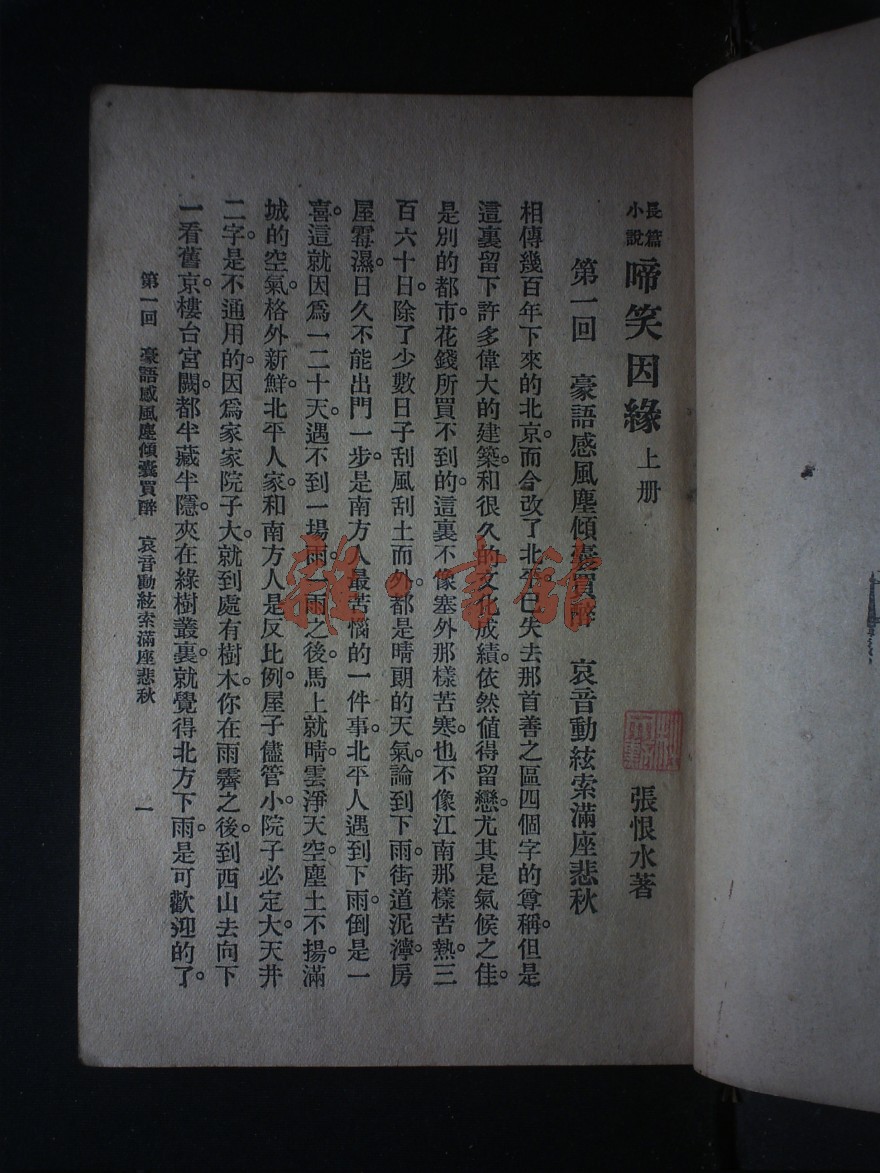 長篇小說 啼笑因緣 上册
張恨水著
第一回 豪語感風塵傾囊買醉 哀音動絃索滿座悲秋
相傳幾百年下來的北京。而今改了北平。已失去那首善之區四個字的尊稱。但是
這裏留下許多偉大的建築。和很久的文化成績。依然值得留戀。尤其是氣候之佳。
是別的都市花錢所買不到的。這裏不像塞外那樣苦寒。也不像江南那樣苦熱。三
百六十日。除了少數日子刮風刮土而外。都是晴朗的天氣。論到下雨。街道泥濘。房
屋霉濕。日久不能出門一步。是南方人最苦惱的一件事。北平人遇到下雨。倒是一
喜。這就因爲一二十天。遇不到一場雨。一雨之後。馬上就晴。雲淨天空。塵土不揚。滿
城的空氣。格外新鮮。北平人家。和南方人是反比例。屋子儘管小。院子必定大。天井
二字。是不通用的。因爲家家院子大。就到處有樹木。你在雨霽之後。到西山去向下
一看舊京。樓台宮闕。都半藏半隱。夾在綠樹叢裏。就覺得北方下雨。是可歡迎的了。
第一回 豪語感風塵傾囊買醉 哀音動絃索滿座悲秋
一
雜·書館